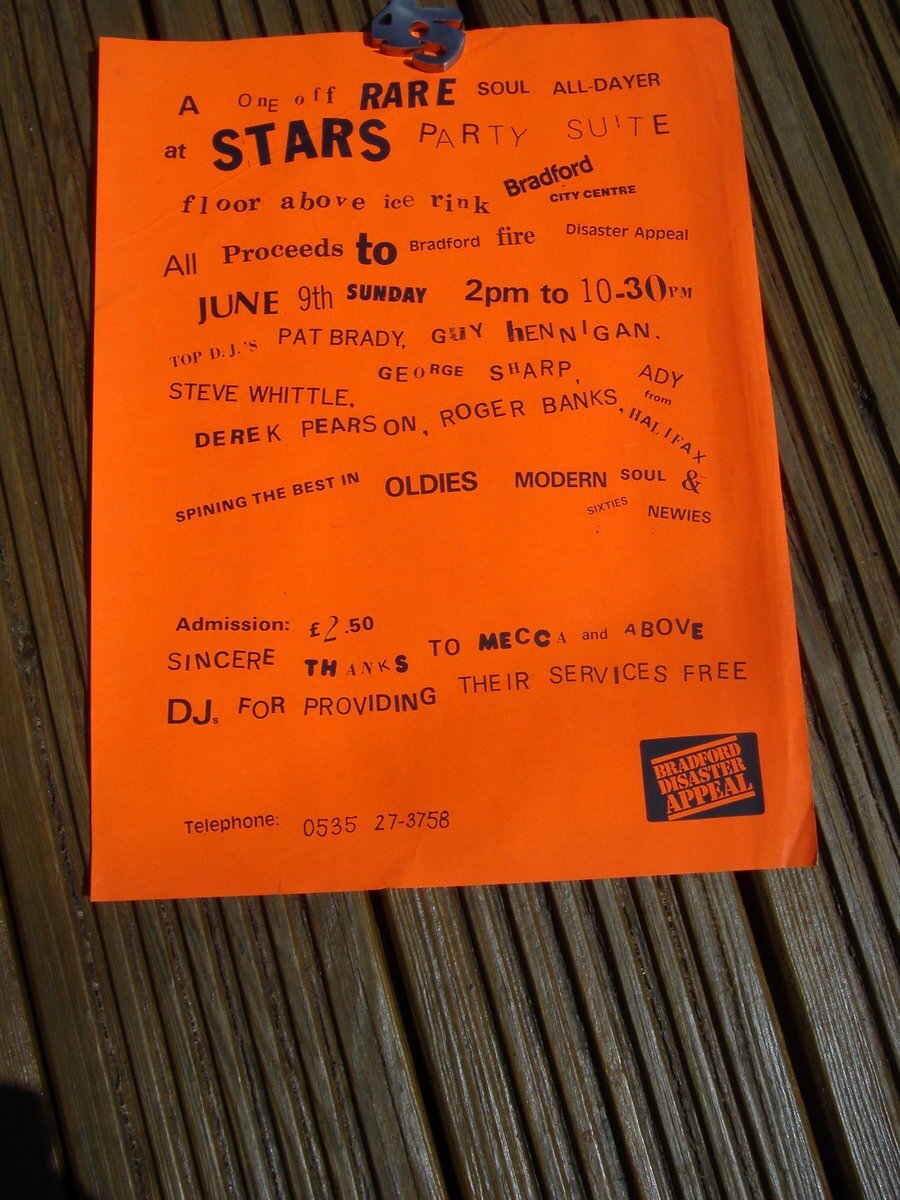 45
A OnE off RARE SOUL ALL-DAYER
at STARS PARTY SUITE
floor above ice rink Bradford CITY CENTRE
All Proceeds to Bradford fire Disaster Appeal
JUNE 9th SUNDAY 2pm to 10-30PM
TOP D.J.'S PAT BRADY, GUY hENNIGAN.
STEVE WHITTLE, GEORGE SHARP, ADY from HALIFAX
DEREK PEARSON, ROGER BANKS,
SPINING THE BEST IN OLDIES MODERN SOUL &
SIXTIES NEWIES
Admission: £2.50
SINCERE THANKS TO MECCA and ABOVE
DJs FOR PROVIDING THEIR SERVICES FREE
BRADFORD
DISASTER
APPEAL
Telephone: 0535 27-3758